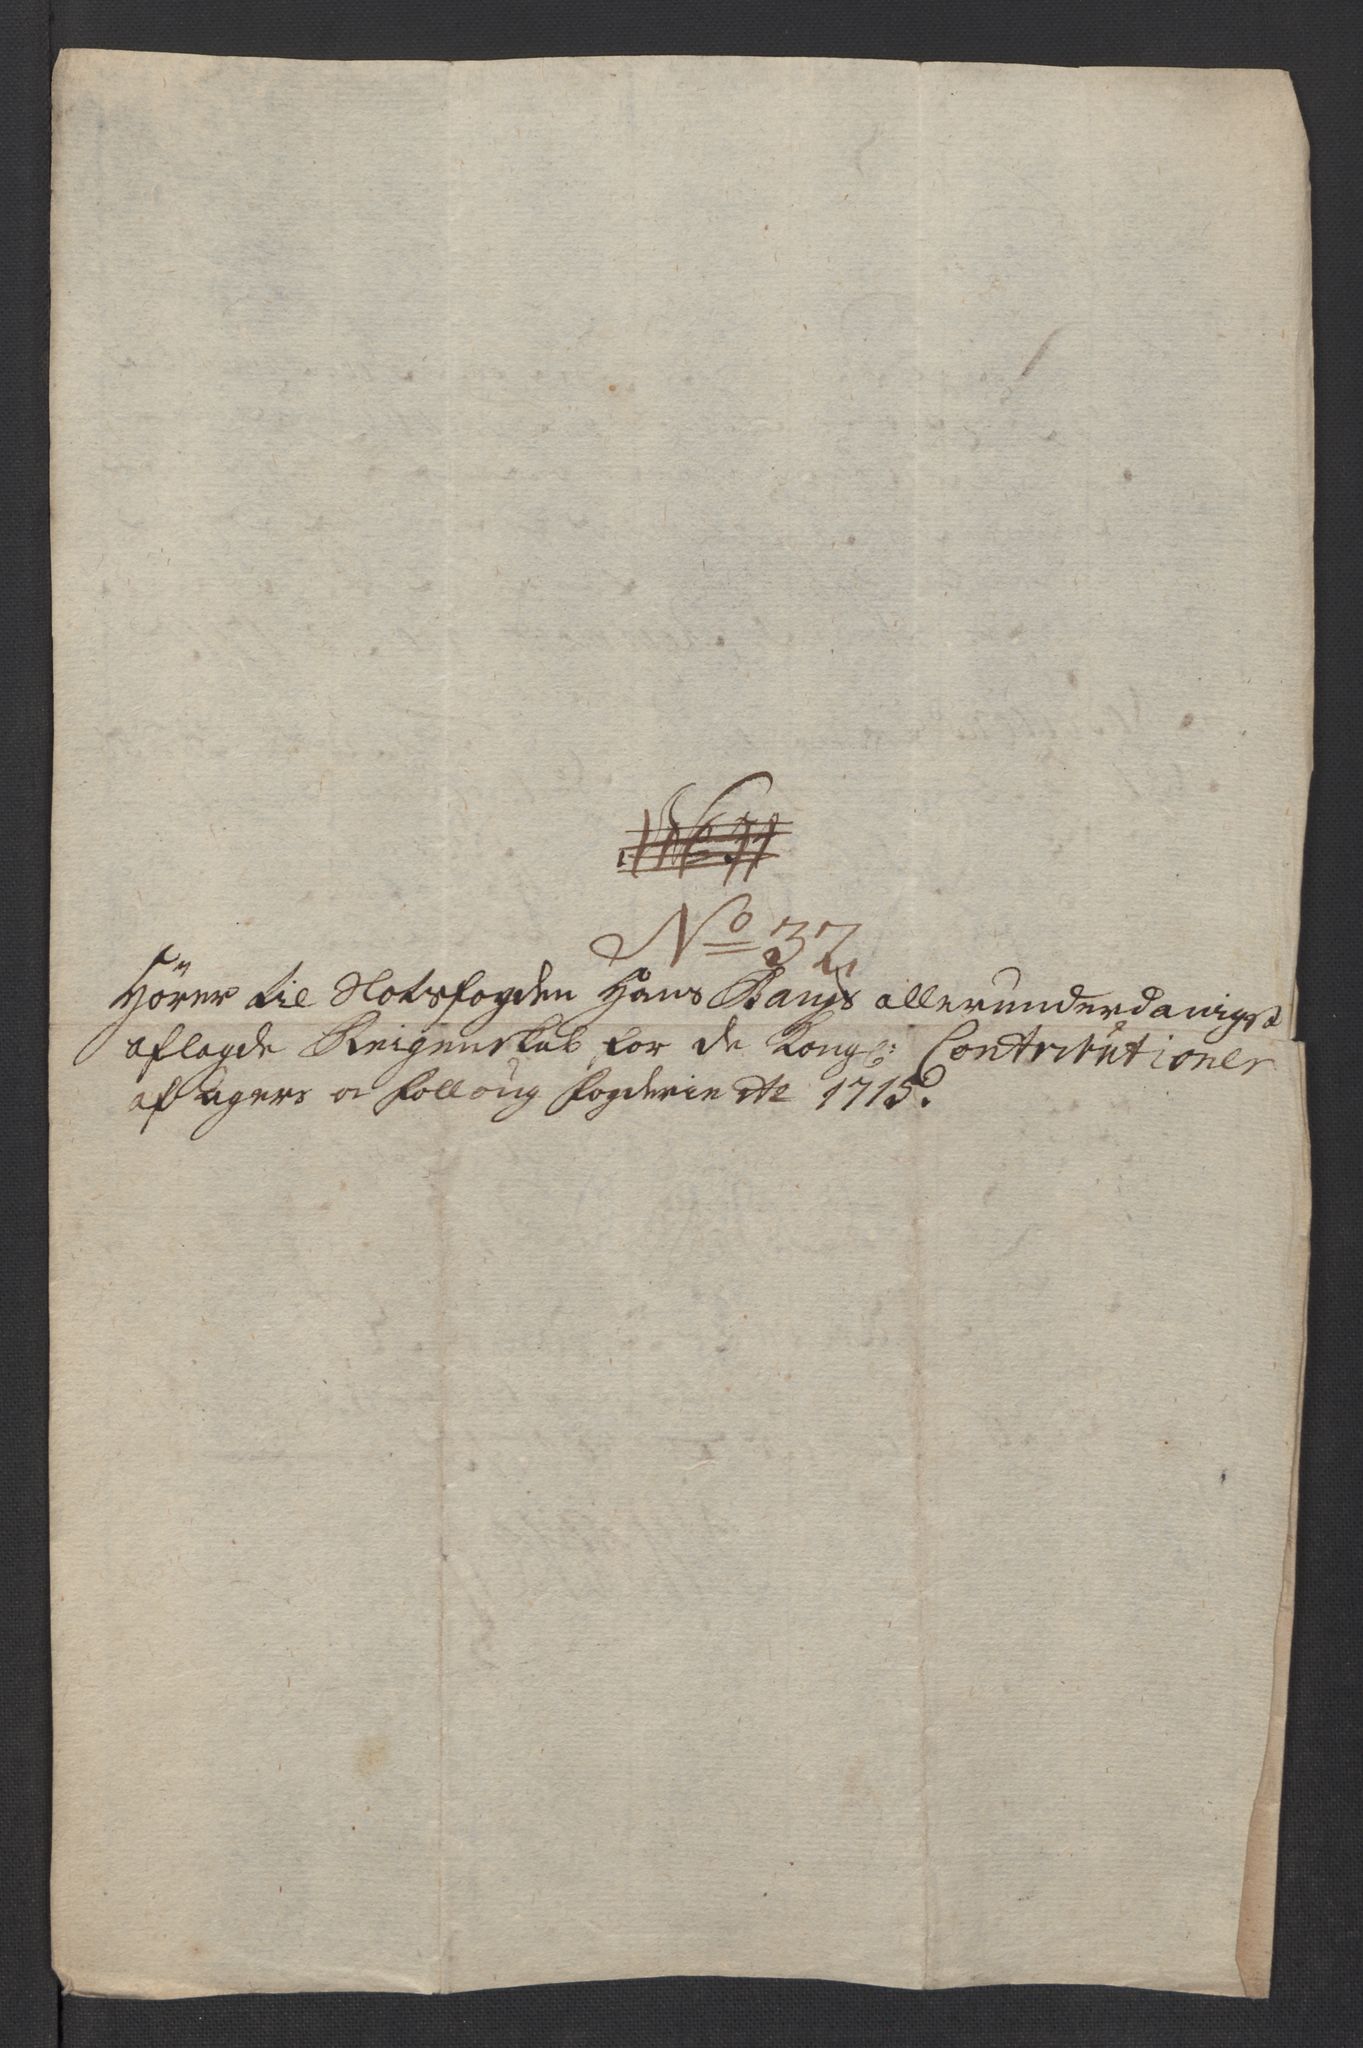 No 32
Hörer til Slotsfogden Hans Bangs allerunderdanigst
aflagde Reigenskab for de Kongl: Contributioner
af Agers oc Folloug fogderie pro 1715.